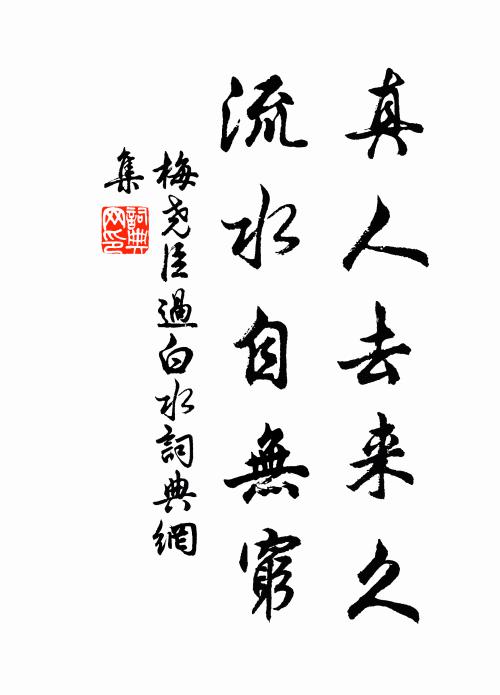 真人去来久
流水自無窮
梅堯臣過白水詞典網
集
詞典
网印